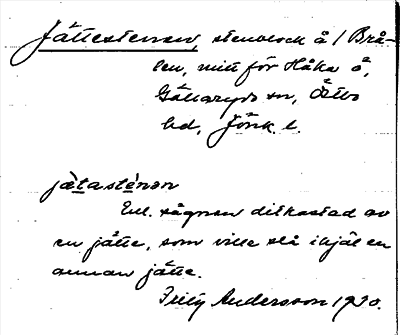 Jättestenen, stenblock å / Brå-
len, mitt för Håka ö,
Gällaryds sn, Östbo
hd, Jönk. l.
jätasténən
Enl. sägnen ditkastad av
en jätte, som ville slå ihjäl en
annan jätte.
Andersson 1930.